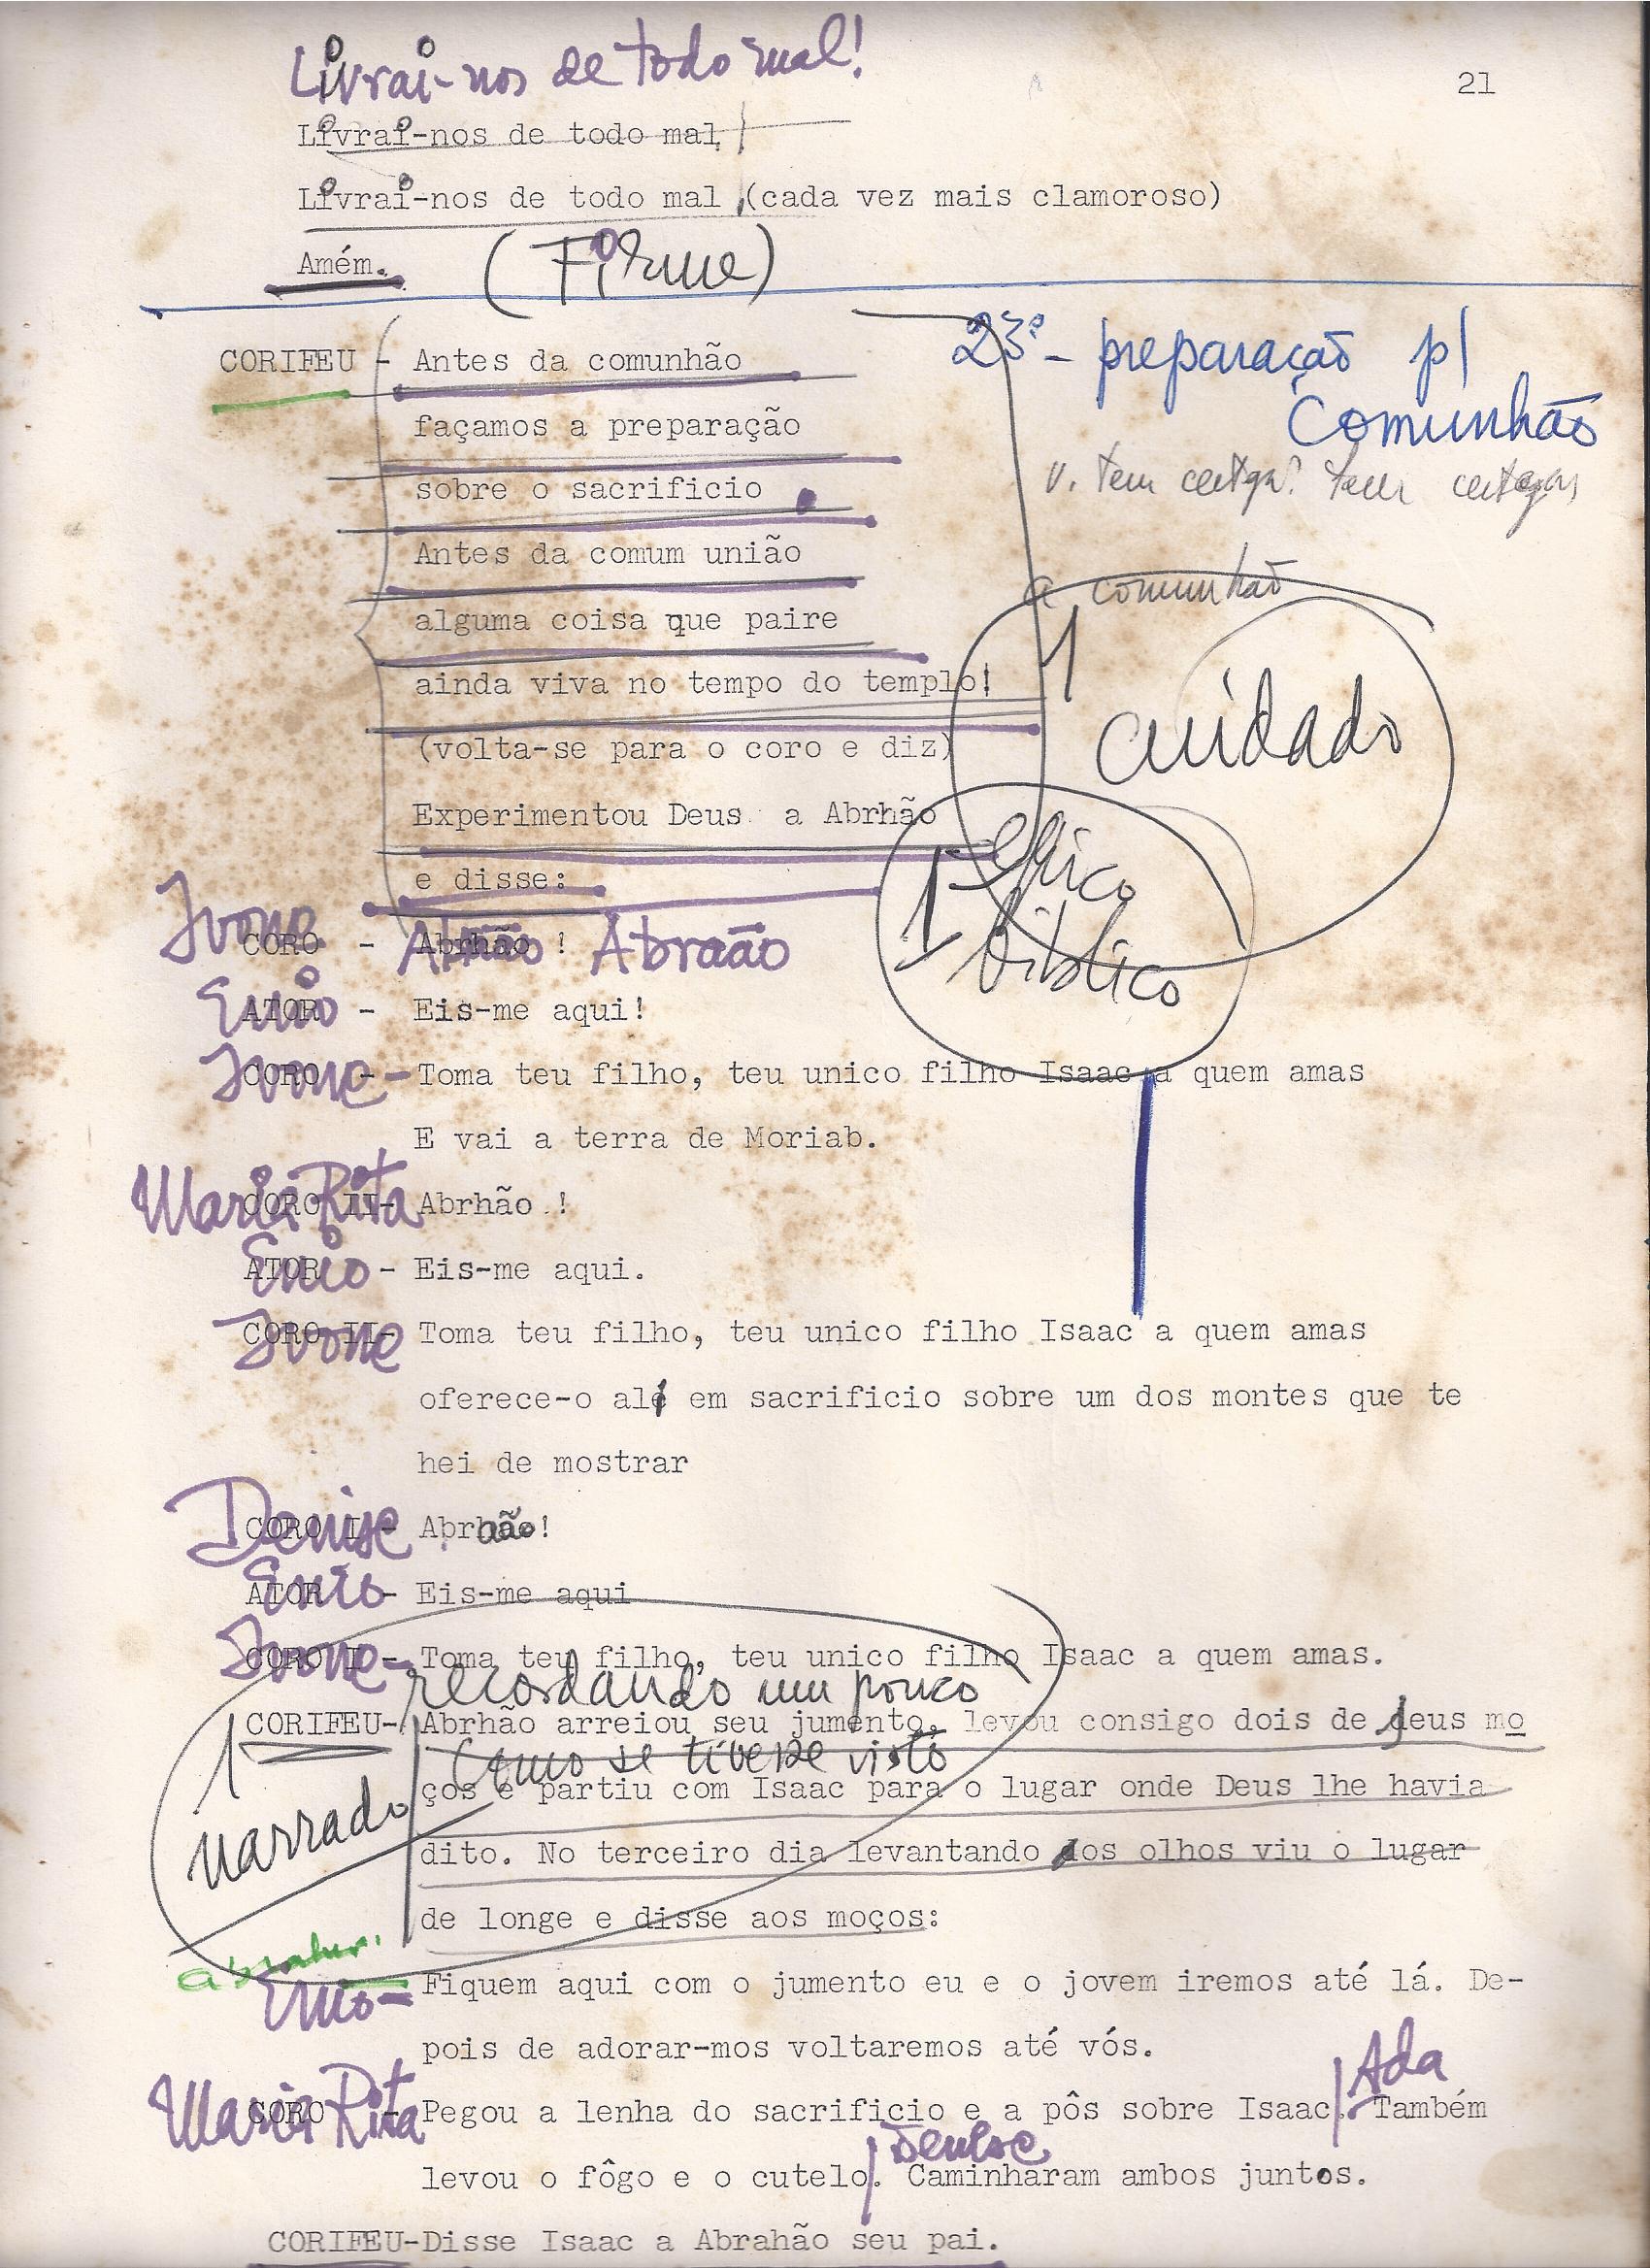 Livrai-nos de todo mal!
21
Livrai-nos de todo mal,
Livrai-nos de todo mal,(cada vez mais clamoroso)
Amém.
(Firme)
CORIFEU - Antes da comunhão
23º- preparação p/
Comunhão
façamos a preparação
v. tem certeza? tem certeza,
sobre o sacrificio
Antes da comum união
a comunhão
alguma coisa que paire
ainda viva no tempo do templo!
cuidado
(volta-se para o coro e diz)
Experimentou Deus a Abrhão
épico
e disse:
bíblico
Ivone
CORO - Abrhão ! Abraão
Enio
ATOR - Eis-me aqui!
Ivone
CORO - Toma teu filho, teu unico filho Isaac a quem amas
E vai a terra de Moriab.
Maria Rita
CORO II- Abrhão !
Enio
ATOR - Eis-me aqui.
Ivone
CORO II- Toma teu filho, teu unico filho Isaac a quem amas
oferece-o alí em sacrificio sobre um dos montes que te
hei de mostrar
Denise
CORO I- Abrhão!
Enio
ATOR - Eis-me aqui
Ivone
CORO I - Toma teu filho, teu unico filho Isaac a quem amas.
recordando um pouco
CORIFEU- Abrhão arreiou seu jumento, levou consigo dois de seus mo
como se tivesse visto
ços e partiu com Isaac para o lugar onde Deus lhe havia
narrado
dito. No terceiro dia levantando os olhos viu o lugar
de longe e disse aos moços:
Enio- Fiquem aqui com o jumento eu e o jovem iremos até lá. De-
pois de adorar-mos voltaremos até vós.
Ada
Maria Rita
CORO - Pegou a lenha do sacrificio e a pôs sobre Isaac. Também
Denise
levou o fôgo e o cutelo. Caminharam ambos juntos.
CORIFEU-Disse Isaac a Abrahão seu pai.